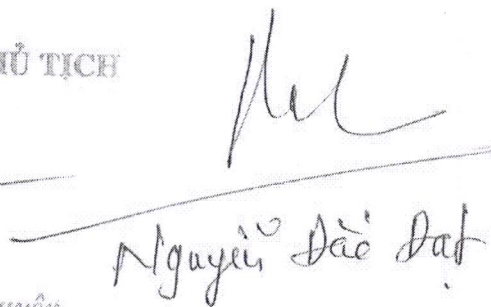 HỦ TỊCH
Nguyễn Đắc Đạt